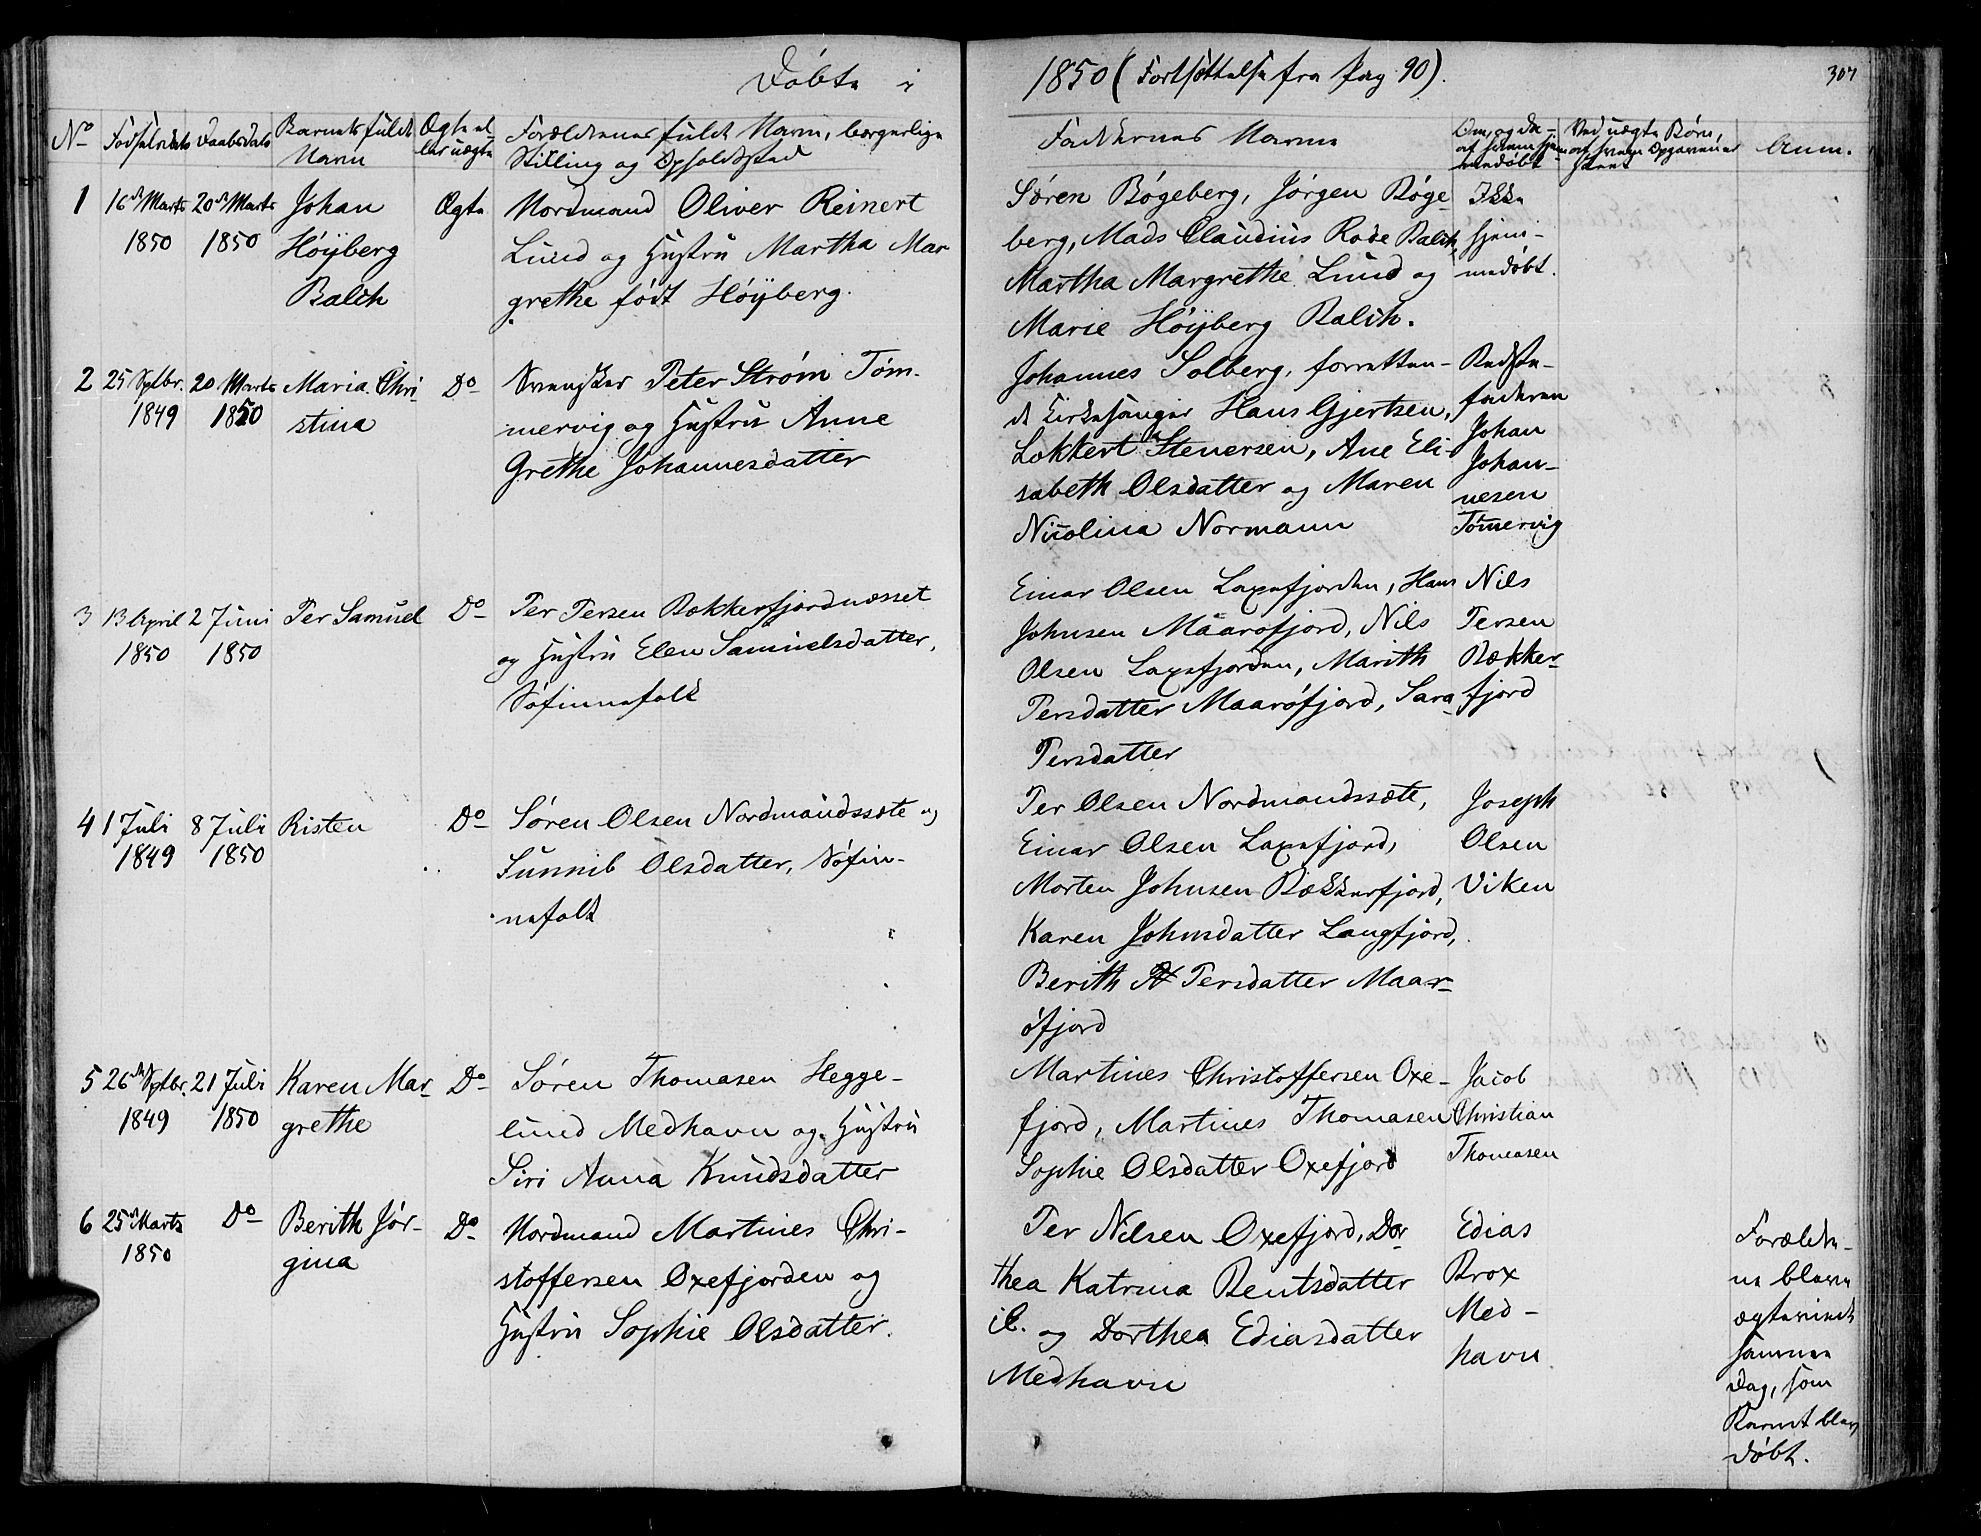 Döbte i
1850 (Fortsættelse fra Pag 90).
307
No
Fødselsdato
Daabsdato
Barnets fulde
Navn
Ægte el-
ler uægte
Forældrenes fulde Navn, borgerlige
Stilling og Opholdssted
Faddernes Navne
Om, og da
af hvem hjem-
medøbt
Ved uægte Børn,
Anm.
1
16de Marts
1850
20de Marts
1850
Johan
Höÿberg
Balch
Ægte
Nordmand Oliver Reinert
Lund og Hustru Martha Mar
grethe født Höÿberg.
Søren Bögeberg, Jörgen Böge-
berg, Mads Claudius Rode Balch,
Martha Margrethe Lund og
Marie Höÿberg Balch.
Ikke
hjem-
medöbt.
2
25 Sptbr.
1849
20 Marts
1850
Maria Chri-
stina
Do
Svensker Peter Ström Töm-
mervig og Hustru Anne
Grethe Johannesdatter
Johannes Solberg, forretten-
de Kirkesanger Hans Gjertsen,
Lokkert Stenersen, Ane Eli-
sabeth Olsdatter og Maren
Nicolina Normann
Bedste-
faderen
Johan
Johan-
nesen
Tömervig
3
13 April
1850
2 Juni
1850
Per Samuel
Do
Per Persen Bekkerfjordnæsset
og Hustru Elen Samuelsdatter,
Söfinnefolk
Einar Olsen Laxefjorden, Hans
Johnsen Maaröfjord, Nils
Olsen Laxefjorden, Marith
Persdatter Maaröfjord, Sara
Persdatter
Nils
Persen
Bekker-
fjord
4
1 Juli
1849
8 Juli
1850
Risten
Do
Søren Olsen Nordmandssæte og
Sunnib Olsdatter, Söfin-
nefolk
Per Olsen Nordmandssæte,
Einar Olsen Laxefjord,
Morten Johnsen Bækkerfjord,
Karen Johnsdatter Langfjord,
Berith Persdatter Maar-
öfjord
Joseph
Olsen
Viken
5
26de Sptbr.
1849
21 Juli
1850
Karen Mar-
grethe
Do
Søren Thomasen Hegge-
lund Medhavn og Hustru
Siri Anna Knudsdatter
Martines Christoffersen Oxe-
fjord, Martines Thomasen
Sophie Olsdatter Oxefjord
Jacob
Christian
Thomasen
6
25de Marts
1850
Do
Berith Jör-
gina
Do
Nordmand Martines Chri-
stoffersen Oxefjorden og
Hustru Sophie Olsdatter.
Per Nilsen Oxefjord, Dor-
thea Katrina Bentsdatter
ib. og Dorthea Ediasdatter
Medhavn
Edias
Brox
Med-
havn
Forældre-
ne bleve
ægteviede
samme
Dag, som
Barnet blev
döbt.